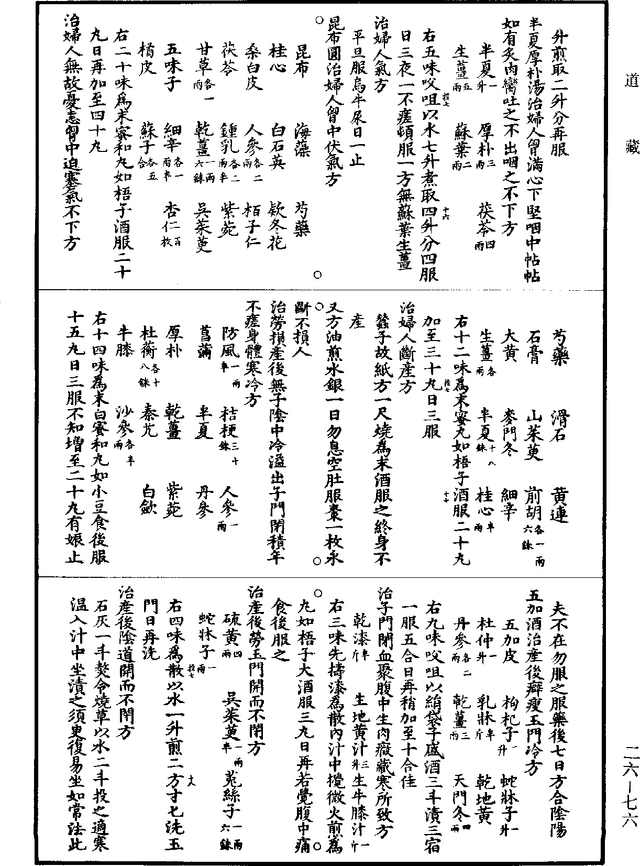 道藏
升煎取二升分再服
半夏厚朴湯治婦人胷滿心下堅咽中帖帖
如有炙肉臠吐之不出咽之不下方
半夏一升 厚朴三兩 茯苓四兩
生薑五兩 蘇葉二兩
右五味㕮咀以水七升煮取四升分四服
日三夜一不瘥頓服一方無蘇葉生薑
治婦人氣方
平旦服烏牛尿日一止
昆布圓治婦人胷中伏氣方
昆布 海藻 芍藥
桂心 白石英 欵冬花
桑白皮 人參各二兩 栢子仁
茯苓 鍾乳各二兩半 紫菀
甘草各一兩 乾薑一兩六銖 吳茱萸
五味子 細辛各一兩半 杏仁百枚
橘皮 蘇子各五合
右二十味爲末蜜和丸如梧子酒服二十
九日再加至四十九
治婦人無故憂恚胷中迫塞氣不下方
芍藥 滑石 黃連
石膏 山茱萸 前胡各一兩六銖
大黃 麥門冬 細辛
生薑各一兩 半夏十八銖 桂心半兩
右十二味爲末蜜丸如梧子酒服二十九
加至三十九日三服
治婦人斷產方
蠶子故紙方一尺燒爲末酒服之終身不
產
又方油煎水銀一日勿息空肚服棗一枚永
斷不損人
治勞損產後無子陰中冷溢出子門閉積年
不瘥身體寒冷方
防風一兩半 桔梗三十銖 人參一兩
菖蒲 半夏 丹參
厚朴 乾薑 紫菀
杜蘅各十八銖 秦艽 白歛
牛膝 沙參各半兩
右十四味爲末白蜜和丸如小豆食後服
十五九日三服不知增至二十九有娠止
夫不在勿服之服藥後七日方合陰陽
五加酒治產後癖瘦玉門冷方
五加皮 枸杞子一升 蛇牀子一升
杜仲一升 乳牀半斤 乾地黃
丹參各二兩 乾薑三兩 天門冬四兩
右九味㕮咀以絹袋子盛酒三斗漬三宿
一服五合日再稍加至十合佳
治子門閉血聚腹中生肉癥藏寒所致方
乾漆半斤 生地黃汁三升 生牛膝汁一斤
右三味先擣漆爲散內汁中攪微火煎爲
九如梧子大酒服三九日再若覺腹中痛
食後服之
治產後勞玉門開而不閉方
硫黃四兩 吳茱萸一兩半 菟絲子一兩六銖
蛇牀子一兩
右四味爲散以水一升煎二方寸匕洗玉
門日再洗
治產後陰道開而不閉方
石灰一斗熬令燒草以水二斗投之適寒
温入汁中坐漬之須臾復易坐如常法此
二六—七六